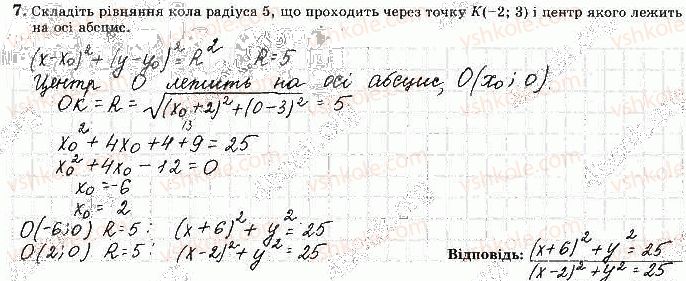 7. Складіть рівняння кола радіуса 5, що проходить через точку K(−2; 3) і центр якого лежить
на осі абсцис.
(x-x₀)² + (y-y₀)² = R² R=5
Центр O лежить на осі абсцис, O(x₀; 0).
OK = R = √((x₀+2)² + (0-3)²) = 5
13
x₀² + 4x₀ + 4 + 9 = 25
x₀² + 4x₀ - 12 = 0
x₀ = -6
x₀ = 2
O(-6; 0) R=5: (x+6)² + y² = 25
O(2; 0) R=5: (x-2)² + y² = 25
Відповідь: (x+6)² + y² = 25
(x-2)² + y² = 25